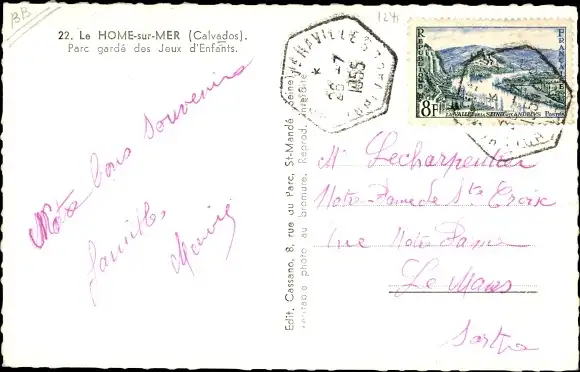 BB
22. Le HOME-sur-MER (Calvados).
Parc gardé des Jeux d'Enfants.
Notre bons souvenirs
Famille
Edit. Cassano, 8, rue du Parc, St-Mandé (Seine)
véritable photo au bromure. Reprod. interdite
26-7
1955
RÉPUBLIQUE FRANÇAISE
8F
LA VALLÉE DE LA SEINE AUX ANDELYS
POSTES
Mr Lecharpentier
Notre-Dame de Ste Croix
Rue Notre Dame
Le Mans
Sarthe